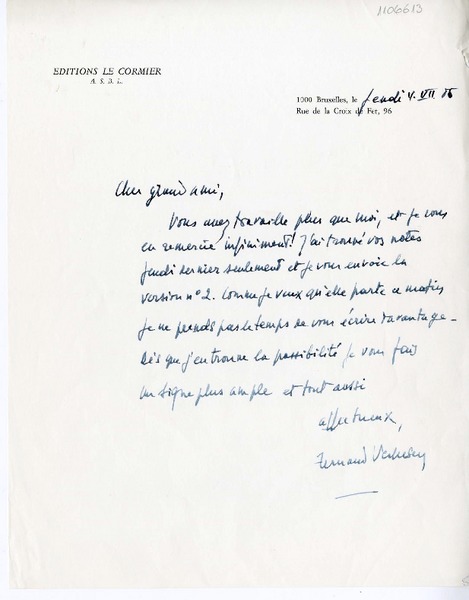 1106613
EDITIONS LE CORMIER
A. S. B. L.
1000 Bruxelles, le jeudi 4. VII 85
Rue de la Croix de Fer, 96
Cher grand ami,
Vous avez travaillé plus que moi, et je vous
en remercie infiniment! J'ai trouvé vos notes
jeudi dernier seulement et je vous envoie la
version n° 2. Comme je veux qu'elle parte ce matin
je ne prends pas le temps de vous écrire davantage –
Dès que j'en trouve la possibilité je vous fais
un signe plus ample et tout aussi
affectueux,
Fernand Verhesen